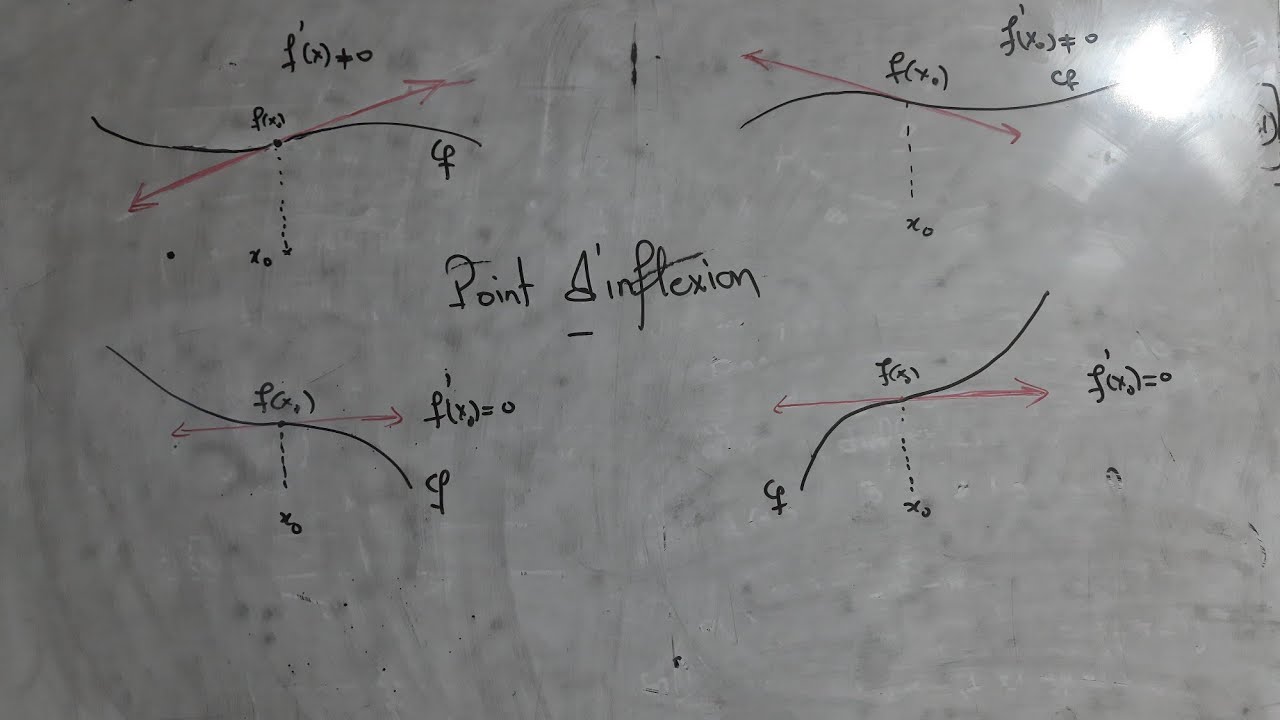 f'(x) ≠ 0
f(x₀)
Cf
x₀
f'(x₀) ≠ 0
f(x₀)
Cf
x₀
Point d'inflexion
f(x₀)
f'(x₀) = 0
Cf
x₀
f(x₀)
f'(x₀) = 0
Cf
x₀